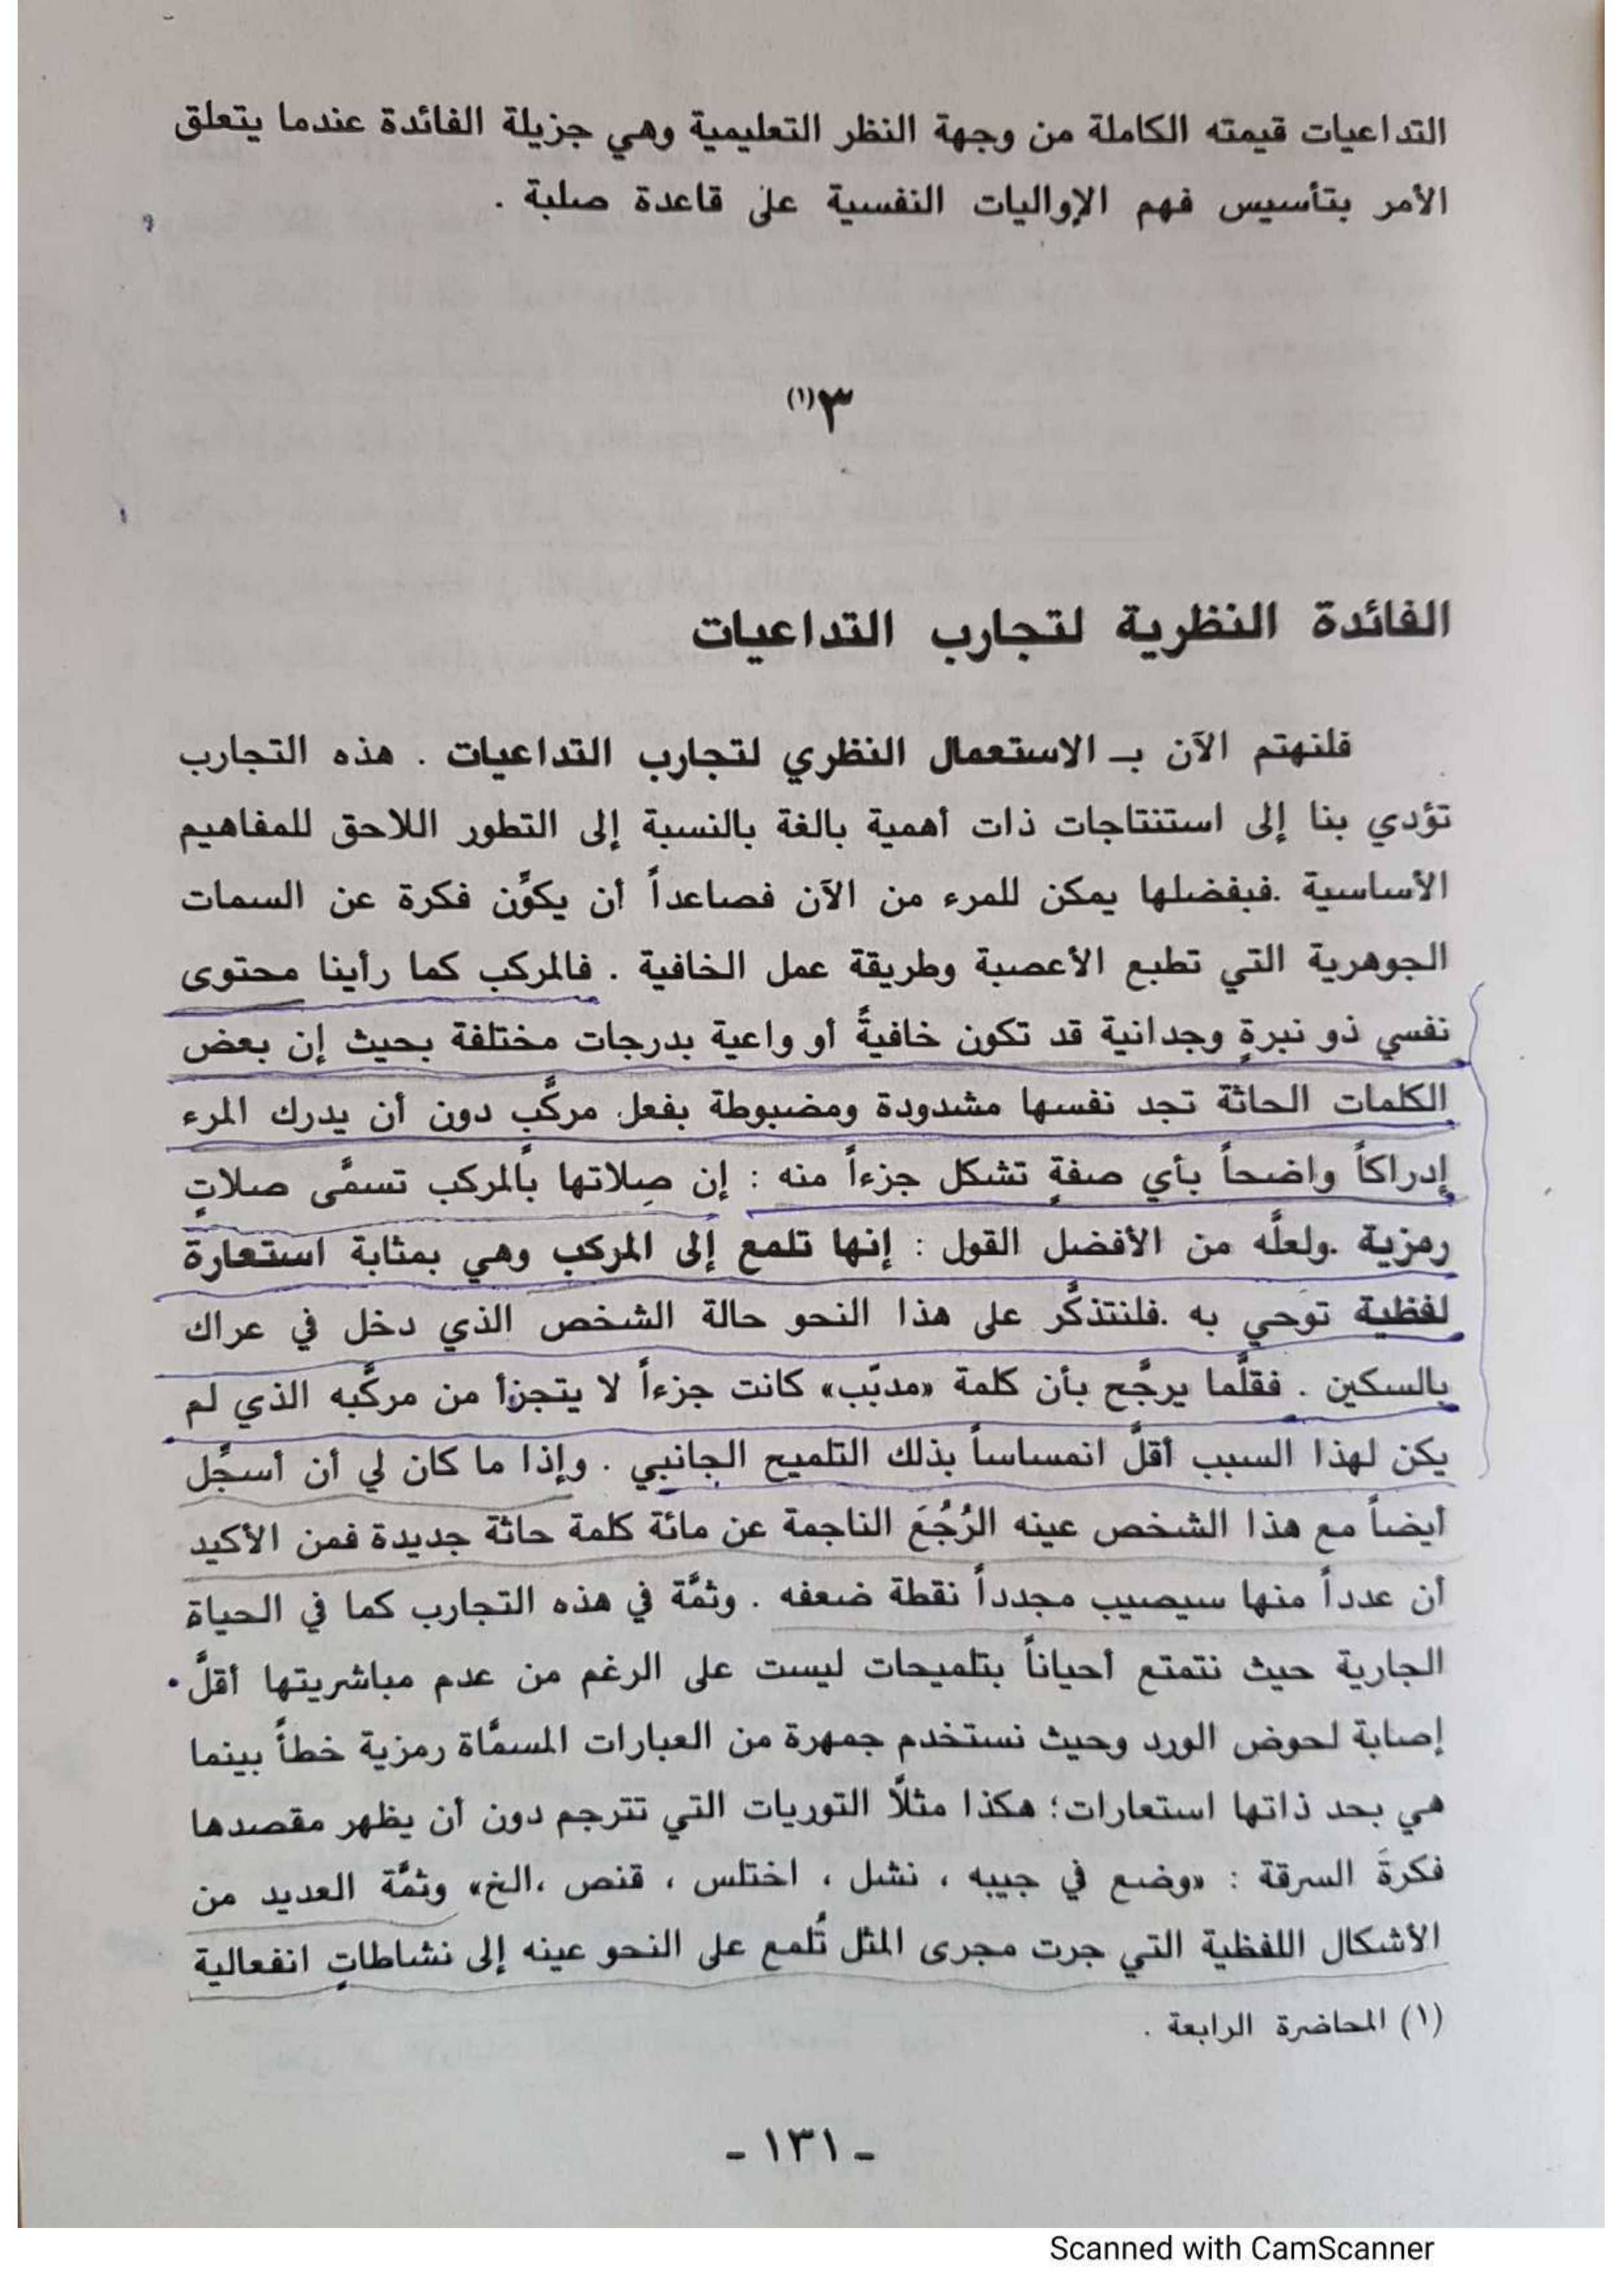 التداعيات قيمته الكاملة من وجهة النظر التعليمية وهي جزيلة الفائدة عندما يتعلق
الأمر بتأسيس فهم الإواليات النفسية على قاعدة صلبة .
٣(١)
الفائدة النظرية لتجارب التداعيات
فلنهتم الآن بـ الاستعمال النظري لتجارب التداعيات . هذه التجارب
تؤدي بنا إلى استنتاجات ذات أهمية بالغة بالنسبة إلى التطور اللاحق للمفاهيم
الأساسية .فبفضلها يمكن للمرء من الآن فصاعداً أن يكوِّن فكرة عن السمات
الجوهرية التي تطبع الأعصبة وطريقة عمل الخافية . فالمركب كما رأينا محتوى
نفسي ذو نبرةٍ وجدانية قد تكون خافيةً أو واعية بدرجات مختلفة بحيث إن بعض
الكلمات الحاثة تجد نفسها مشدودة ومضبوطة بفعل مركَّبٍ دون أن يدرك المرء
إدراكاً واضحاً بأي صفةٍ تشكل جزءاً منه : إن صِلاتها بالمركب تسمَّى صلاتٍ
رمزية .ولعلَّه من الأفضل القول : إنها تلمع إلى المركب وهي بمثابة استعارة
لفظية توحي به .فلنتذكَّر على هذا النحو حالة الشخص الذي دخل في عراك
بالسكين . فقلَّما يرجَّح بأن كلمة «مدبّب» كانت جزءاً لا يتجزأ من مركَّبه الذي لم
يكن لهذا السبب أقلَّ انمساساً بذلك التلميح الجانبي . وإذا ما كان لي أن أسجِّل
أيضاً مع هذا الشخص عينه الرُجُعَ الناجمة عن مائة كلمة حاثة جديدة فمن الأكيد
أن عدداً منها سيصيب مجدداً نقطة ضعفه . وثمَّة في هذه التجارب كما في الحياة
الجارية حيث نتمتع أحياناً بتلميحات ليست على الرغم من عدم مباشريتها أقلَّ
إصابة لحوض الورد وحيث نستخدم جمهرة من العبارات المسمَّاة رمزية خطأً بينما
هي بحد ذاتها استعارات؛ هكذا مثلاً التوريات التي تترجم دون أن يظهر مقصدها
فكرةَ السرقة : «وضع في جيبه ، نشل ، اختلس ، قنص ،الخ» وثمَّة العديد من
الأشكال اللفظية التي جرت مجرى المثل تُلمع على النحو عينه إلى نشاطاتٍ انفعالية
(١) المحاضرة الرابعة .
- ١٣١ -
Scanned with CamScanner